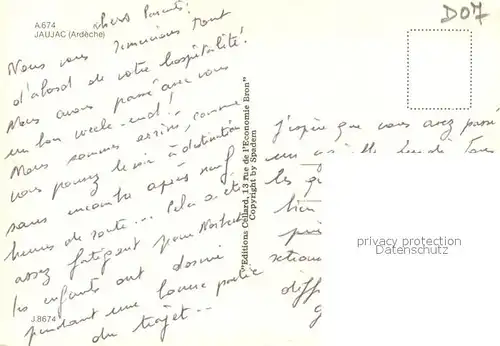 A.674
JAUJAC (Ardèche)
DO7
chers Parents!
Nous vous remercions tout
d'abord de votre hospitalité!
Nous avons passé avec vous
un bon week-end!
Nous sommes arrivés, comme
vous pouvez le voir à destination
sans encombre après neuf
heures de route... Cela a été
assez fatigant pour Norbert
les enfants ont dormi
pendant une bonne partie
du trajet...
J.8674
"Editions Cellard, 13 rue de l'Economie Bron"
Copyright by Spadem
J'espère que vous avez passé
un
les
bien
diff
privacy protection
Datenschutz